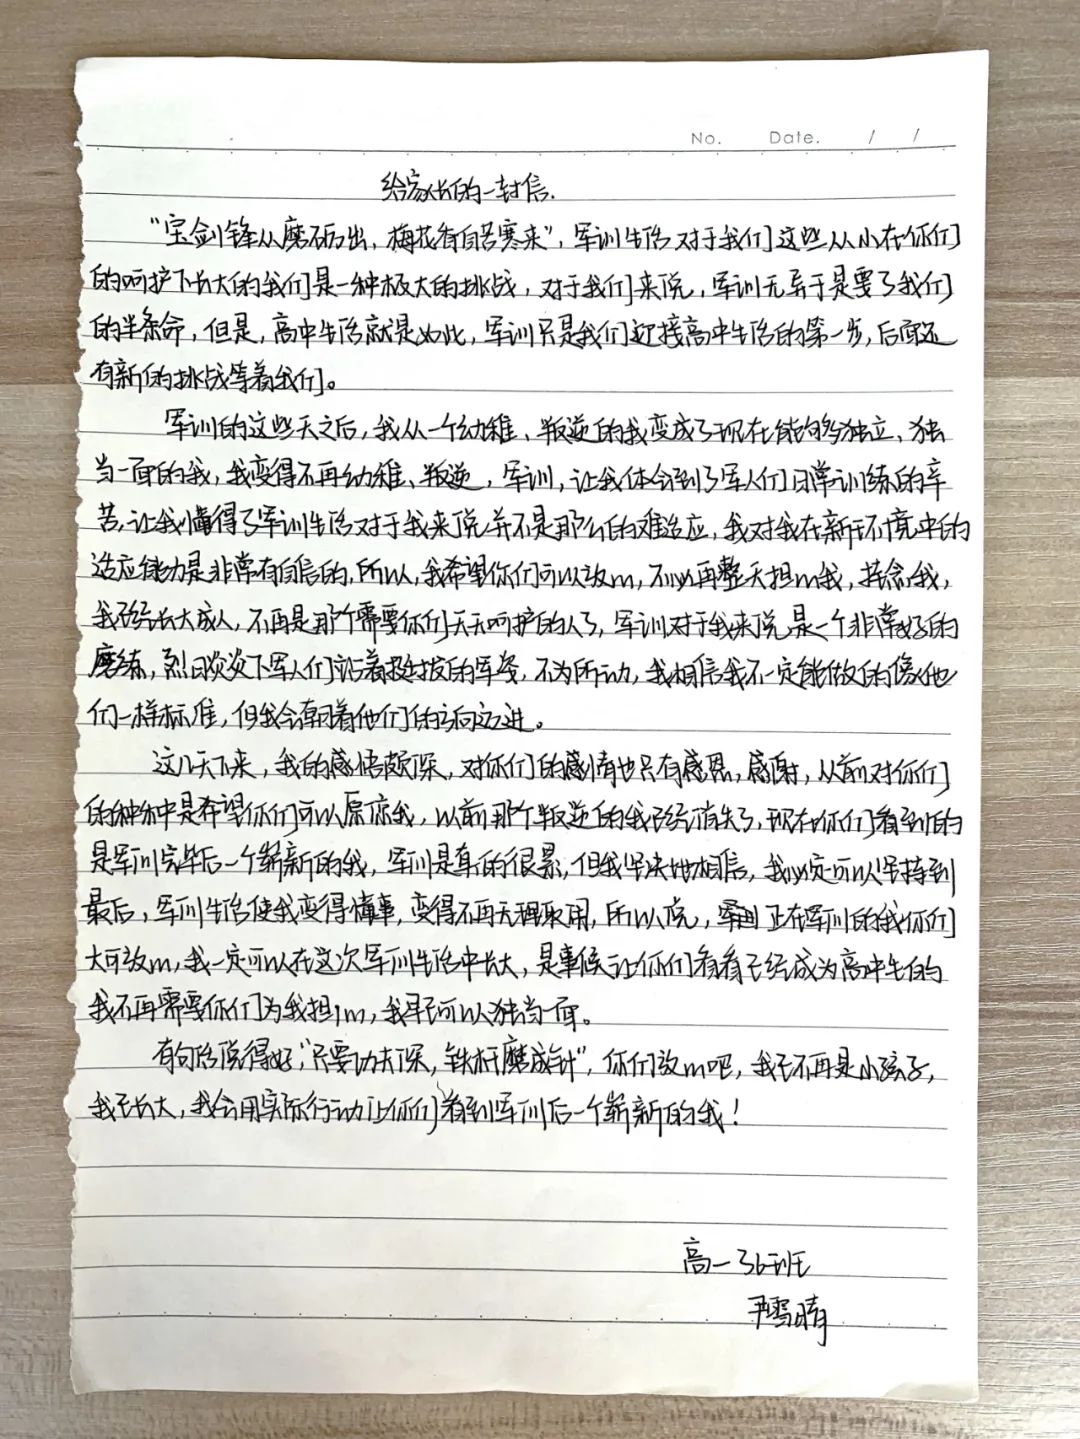 No.    Date.    /    /
给家长的一封信.
“宝剑锋从磨砺出，梅花香自苦寒来”，军训生活对于我们这些从小在你们
的呵护下长大的我们是一种极大的挑战，对于我们来说，军训无异于是要了我们
的半条命，但是，高中生活就是如此，军训只是我们迎接高中生活的第一步，后面还
有新的挑战等着我们。
军训的这些天之后，我从一个幼稚、叛逆的我变成了现在能够独立、独
当一面的我，我变得不再幼稚、叛逆，军训，让我体会到了军人们日常训练的辛
苦，让我懂得了军训生活对于我来说并不是那么的难适应，我对我在新环境中的
适应能力是非常有自信的，所以，我希望你们可以放心，不必再整天担心我，挂念我，
我已经长大成人，不再是那个需要你们天天呵护的人了，军训对于我来说是一个非常好的
磨练，烈日炎炎下军人们站着挺拔的军姿，不为所动，我相信我不一定能做的像他
们一样标准，但我会朝着他们的方向迈进。
这几天下来，我的感悟颇深，对你们的感情也只有感恩，感谢，从前对你们
的种种是希望你们可以原谅我，以前那个叛逆的我已经消失了，现在你们看到的
是军训完毕后一个崭新的我，军训是真的很累，但我坚决地相信，我必定可以坚持到
最后，军训生活使我变得懂事，变得不再无理取闹，所以说，正在军训的我你们
大可放心，我一定可以在这次军训生活中长大，是事候让你们看看已经成为高中生的
我不再需要你们为我担心，我早已可以独当一面。
有句话说得好，“只要功夫深，铁杵磨成针”，你们放心吧，我已不再是小孩子，
我已长大，我会用实际行动让你们看到军训后一个崭新的我！
高一36班
尹雪晴